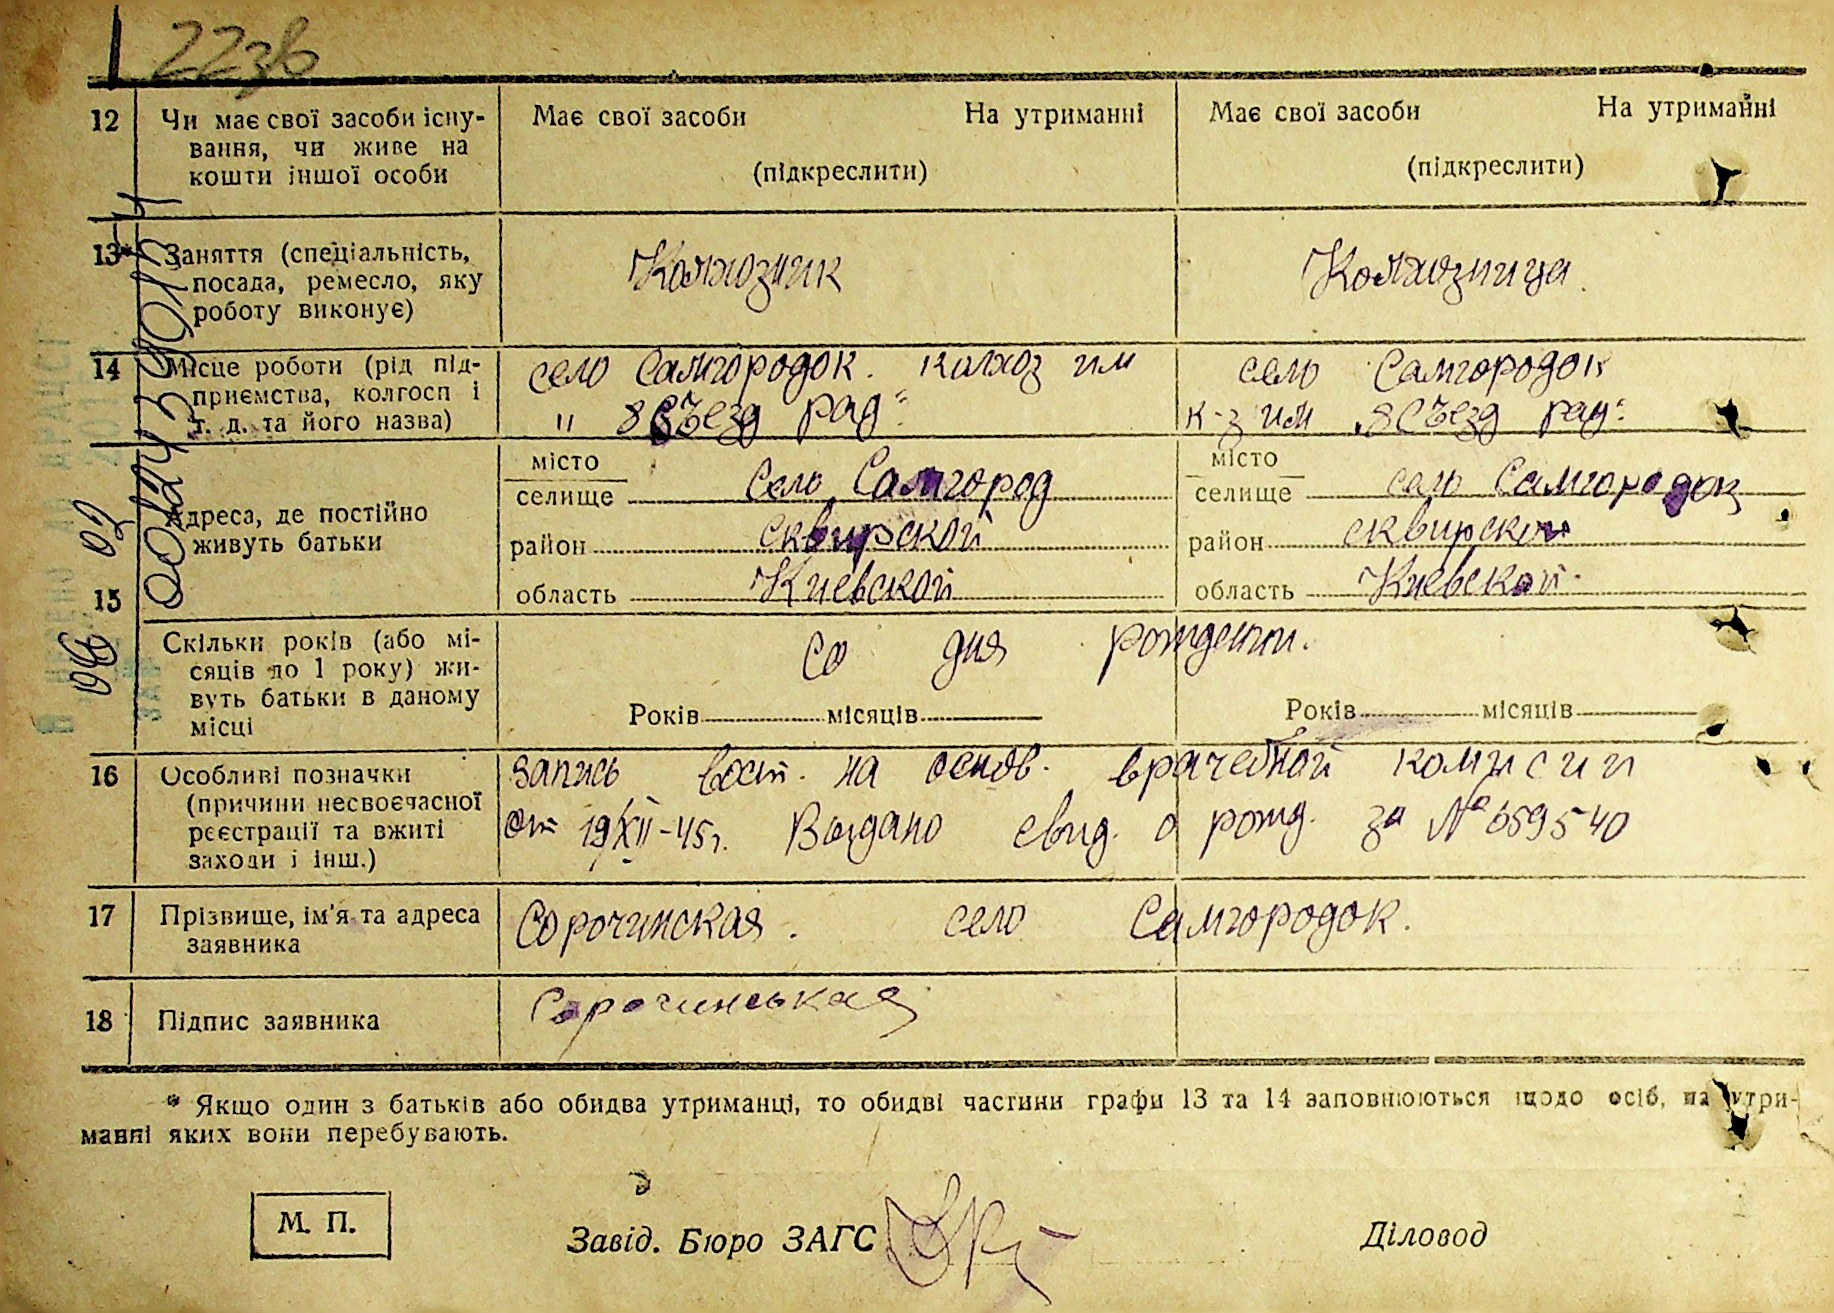 22зв
12 Чи має свої засоби існу- Має свої засоби На утриманні Має свої засоби На утриманні
вання, чи живе на
кошти іншої особи (підкреслити) (підкреслити)
13* Заняття (спеціальність, Колхозник Колхозница
посада, ремесло, яку
роботу виконує)
14 Місце роботи (рід під- село Самгородок. колхоз им село Самгородок
приємства, колгосп і
т. д. та його назва) " 8 Съезд рад" к-з им "8 Съезд рад"
місто місто
селище село Самгород селище село Самгородок
Адреса, де постійно
живуть батьки район сквирской район сквирской
15 область Киевской область Киевской
Скільки років (або мі- Со дня рождении.
сяців до 1 року) жи-
вуть батьки в даному
місці Років місяців Років місяців
16 Особливі позначки запись вост. на основ. врачебной комисии
(причини несвоєчасної
реєстрації та вжиті от 19/XII-45г. Выдано свид. о рожд. за № 659540
заходи і інш.)
17 Прізвище, ім'я та адреса Сорочинская. село Самгородок.
заявника
18 Підпис заявника Сорочинськая
* Якщо один з батьків або обидва утриманці, то обидві частини графи 13 та 14 заповнюються щодо осіб, на утри-
манні яких вони перебувають.
М. П. Завід. Бюро ЗАГС Діловод